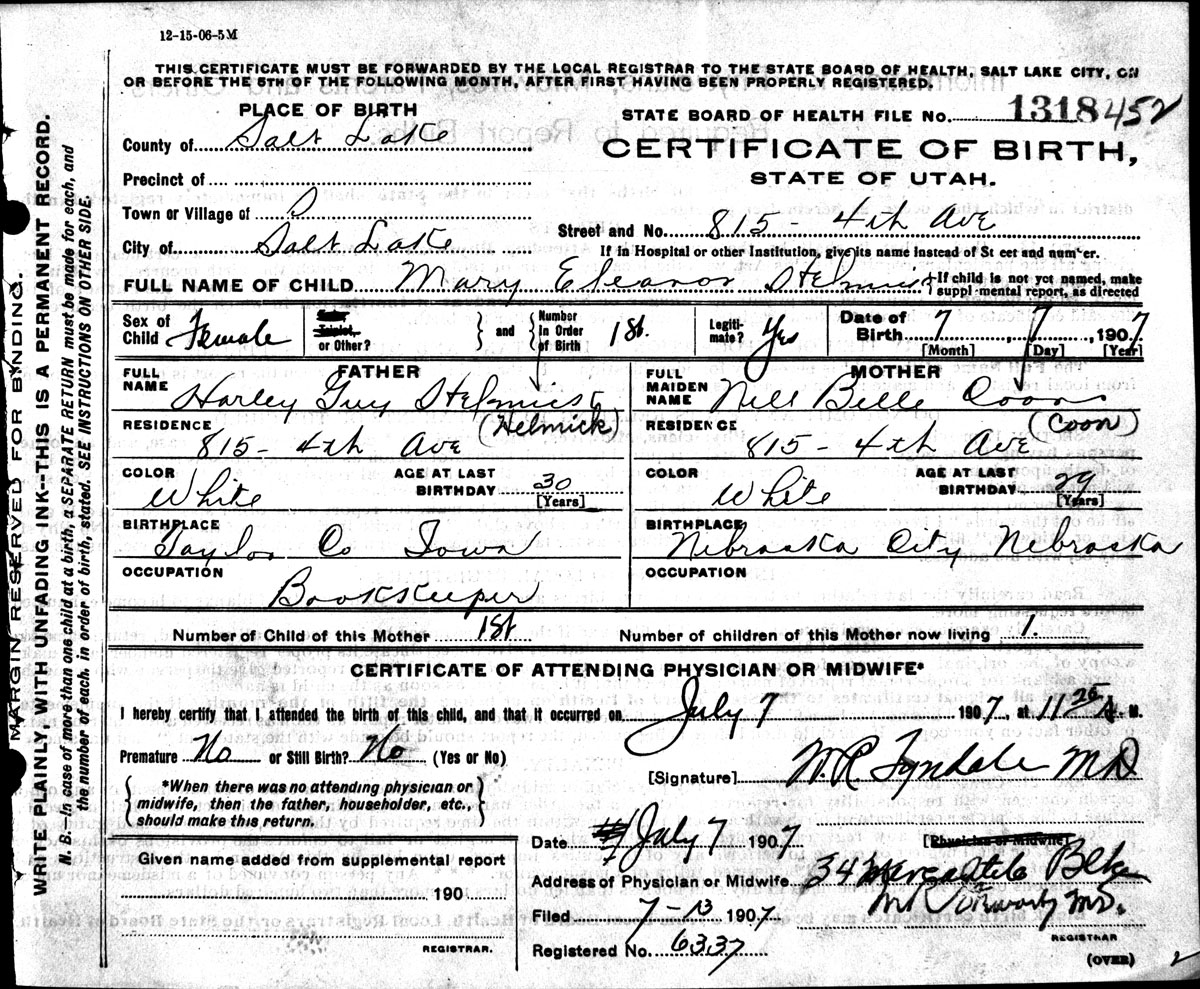 12-15-06-5M
THIS CERTIFICATE MUST BE FORWARDED BY THE LOCAL REGISTRAR TO THE STATE BOARD OF HEALTH, SALT LAKE CITY, ON
OR BEFORE THE 5TH OF THE FOLLOWING MONTH, AFTER FIRST HAVING BEEN PROPERLY REGISTERED.
PLACE OF BIRTH
STATE BOARD OF HEALTH FILE No. 1318 452
County of Salt Lake
CERTIFICATE OF BIRTH,
STATE OF UTAH.
Precinct of
Town or Village of
Street and No. 815 - 4th Ave
City of Salt Lake
If in Hospital or other Institution, give its name instead of St eet and num er.
FULL NAME OF CHILD Mary Eleanor Helmick
If child is not yet named, make
suppl mental report, as directed
Sex of Child Female
Twin, Triplet, or Other?
and
Number in Order of Birth 1st.
Legiti-mate? Yes
Date of Birth 7 7, 1907
[Month] [Day] [Year]
FATHER
FULL NAME Harley Guy Helmick
(Helmick)
RESIDENCE 815 - 4th Ave
COLOR White
AGE AT LAST BIRTHDAY 30 [Years]
BIRTHPLACE Taylor Co Iowa
OCCUPATION Bookkeeper
MOTHER
FULL MAIDEN NAME Nell Belle Coon
(Coon)
RESIDENCE 815 - 4th Ave
COLOR White
AGE AT LAST BIRTHDAY 29 [Years]
BIRTHPLACE Nebraska City Nebraska
OCCUPATION
Number of Child of this Mother 1st
Number of children of this Mother now living 1.
CERTIFICATE OF ATTENDING PHYSICIAN OR MIDWIFE*
I hereby certify that I attended the birth of this child, and that it occurred on July 7 1907, at 11 25 A. M.
Premature No or Still Birth? No (Yes or No)
[Signature] W. R. Tyndale MD
*When there was no attending physician or
midwife, then the father, householder, etc.,
should make this return.
[Physician or Midwife]
Date July 7 1907
Address of Physician or Midwife 34 Mercantile Blk
Filed 7-13 1907
M.D.
REGISTRAR
Registered No. 6337
(OVER)
Given name added from supplemental report
190
REGISTRAR.
MARGIN RESERVED FOR BINDING.
WRITE PLAINLY, WITH UNFADING INK--THIS IS A PERMANENT RECORD.
N. B.--In case of more than one child at a birth, a SEPARATE RETURN must be made for each, and
the number of each, in order of birth, stated. SEE INSTRUCTIONS ON OTHER SIDE.
2